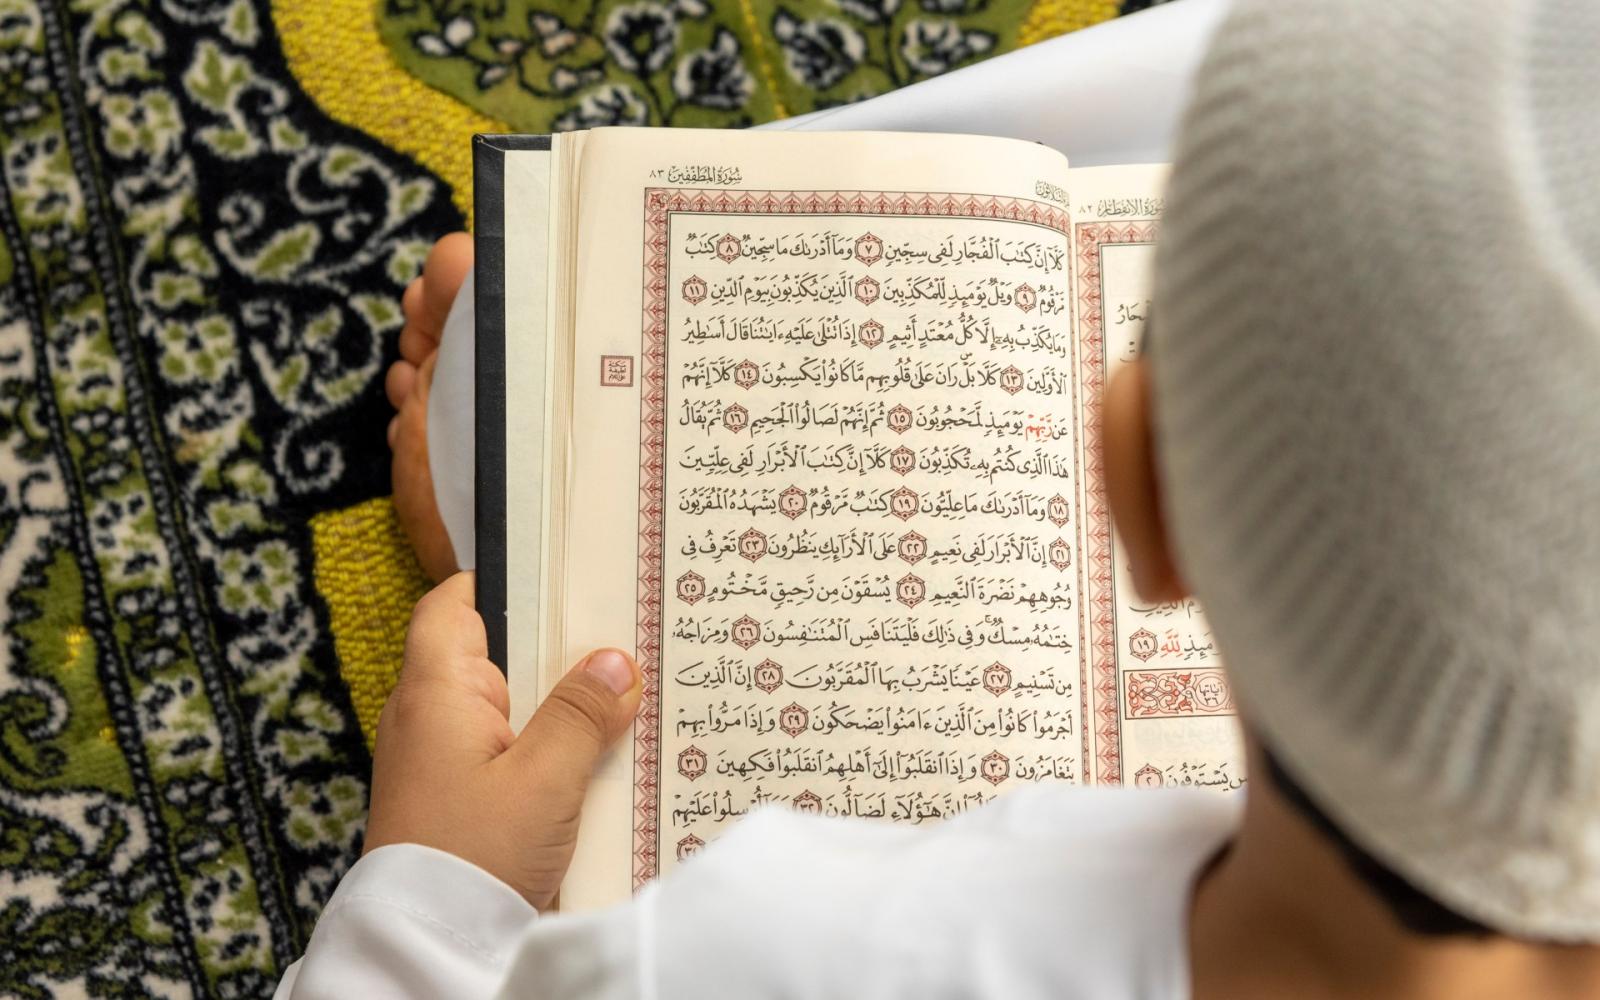 سُورَةُ المُطَفِّفِينَ ٨٣
كَلَّآ إِنَّ كِتَٰبَ ٱلۡفُجَّارِ لَفِي سِجِّينٖ ٧ وَمَآ أَدۡرَىٰكَ مَا سِجِّينٞ ٨ كِتَٰبٞ
مَّرۡقُومٞ ٩ وَيۡلٞ يَوۡمَئِذٖ لِّلۡمُكَذِّبِينَ ١٠ ٱلَّذِينَ يُكَذِّبُونَ بِيَوۡمِ ٱلدِّينِ ١١
وَمَا يُكَذِّبُ بِهِۦٓ إِلَّا كُلُّ مُعۡتَدٍ أَثِيمٍ ١٢ إِذَا تُتۡلَىٰ عَلَيۡهِ ءَايَٰتُنَا قَالَ أَسَٰطِيرُ
ٱلۡأَوَّلِينَ ١٣ كَلَّاۖ بَلۡۜ رَانَ عَلَىٰ قُلُوبِهِم مَّا كَانُواْ يَكۡسِبُونَ ١٤ كَلَّآ إِنَّهُمۡ
عَن رَّبِّهِمۡ يَوۡمَئِذٖ لَّمَحۡجُوبُونَ ١٥ ثُمَّ إِنَّهُمۡ لَصَالُواْ ٱلۡجَحِيمِ ١٦ ثُمَّ يُقَالُ
هَٰذَا ٱلَّذِي كُنتُم بِهِۦ تُكَذِّبُونَ ١٧ كَلَّآ إِنَّ كِتَٰبَ ٱلۡأَبۡرَارِ لَفِي عِلِّيِّينَ
١٨ وَمَآ أَدۡرَىٰكَ مَا عِلِّيُّونَ ١٩ كِتَٰبٞ مَّرۡقُومٞ ٢٠ يَشۡهَدُهُ ٱلۡمُقَرَّبُونَ
٢١ إِنَّ ٱلۡأَبۡرَارَ لَفِي نَعِيمٍ ٢٢ عَلَى ٱلۡأَرَآئِكِ يَنظُرُونَ ٢٣ تَعۡرِفُ فِي
وُجُوهِهِمۡ نَضۡرَةَ ٱلنَّعِيمِ ٢٤ يُسۡقَوۡنَ مِن رَّحِيقٖ مَّخۡتُومٍ ٢٥
خِتَٰمُهُۥ مِسۡكٞۚ وَفِي ذَٰلِكَ فَلۡيَتَنَافَسِ ٱلۡمُتَنَٰفِسُونَ ٢٦ وَمِزَاجُهُۥ
مِن تَسۡنِيمٍ ٢٧ عَيۡنٗا يَشۡرَبُ بِهَا ٱلۡمُقَرَّبُونَ ٢٨ إِنَّ ٱلَّذِينَ
أَجۡرَمُواْ كَانُواْ مِنَ ٱلَّذِينَ ءَامَنُواْ يَضۡحَكُونَ ٢٩ وَإِذَا مَرُّواْ بِهِمۡ
يَتَغَامَزُونَ ٣٠ وَإِذَا ٱنقَلَبُوٓاْ إِلَىٰٓ أَهۡلِهِمُ ٱنقَلَبُواْ فَكِهِينَ ٣١
إِنَّ هَٰٓؤُلَآءِ لَضَآلُّونَ ٣٢ عَلَيۡهِمۡ
سُورَةُ الانفِطَارِ ٨٢
لِّلَّهِ ١٩
يَسۡتَوۡفُونَ ٢